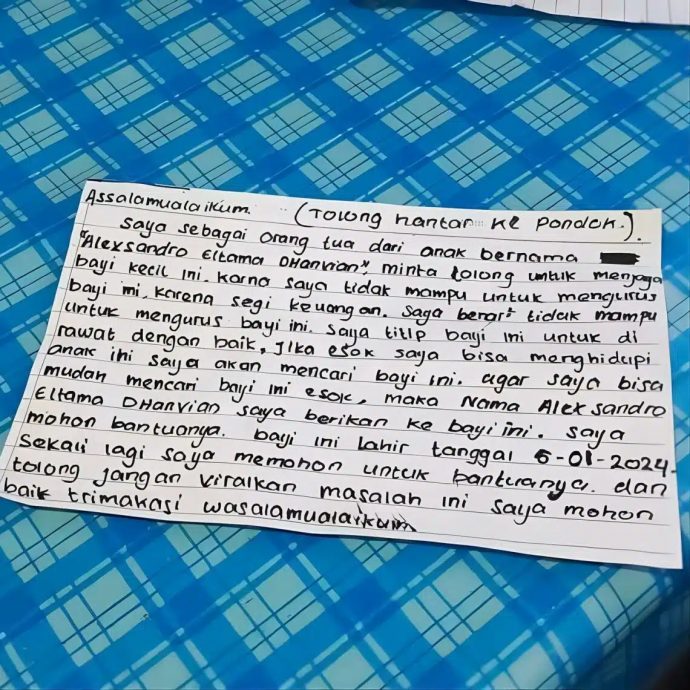 Assalamualaikum. (Tolong hantar ke pondok.).
Saya sebagai orang tua dari anak bernama
"Alexsandro Eltama DHanvian", minta tolong untuk menjaga
bayi kecil ini. karna saya tidak mampu untuk mengurus
bayi ini. karena segi keuangan. Saya benar² tidak mampu
untuk mengurus bayi ini. saya titip bayi ini untuk di
rawat dengan baik, Jika esok saya bisa menghidupi
anak ini saya akan mencari bayi ini. agar saya bisa
mudah mencari bayi ini esok, maka Nama Alexsandro
Eltama DHanvian saya berikan ke bayi ini. saya
mohon bantuanya. bayi ini Lahir tanggal 6-01-2024.
Sekali lagi saya memohon untuk bantuanya. dan
tolong jangan viralkan masalah ini saya mohon
baik trimakasi wasalamualaikum